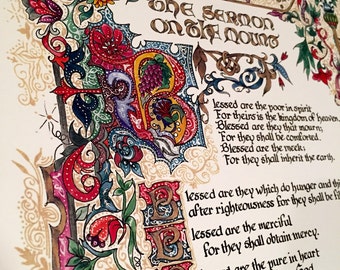 THE SERMON
ON THE MOUNT
Blessed are the poor in spirit
For theirs is the kingdom of heaven.
Blessed are they that mourn:
For they shall be comforted.
Blessed are the meek:
For they shall inherit the earth.
Blessed are they which do hunger and thi
after righteousness for they shall be fi
Blessed are the merciful
for they shall obtain mercy.
Blessed are the pure in heart